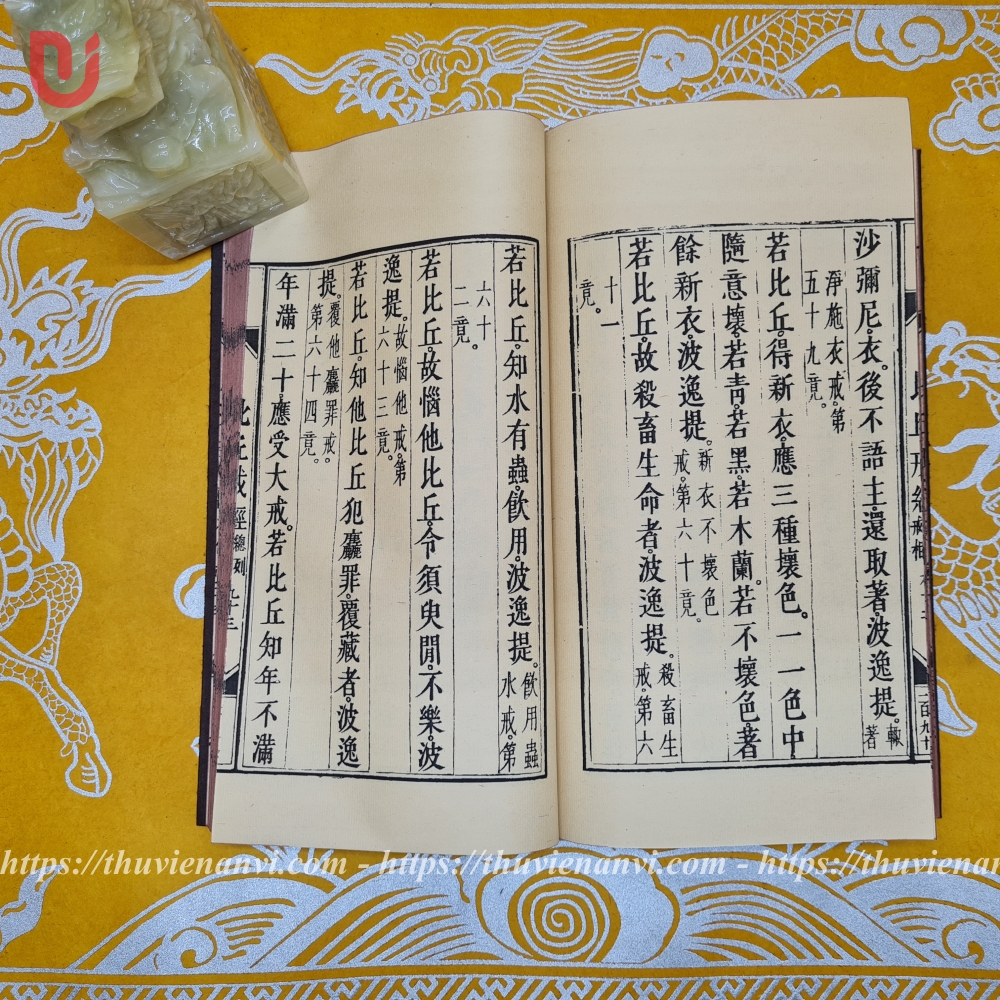 沙彌尼。衣。後不語主。還取著。波逸提。輙著
淨施衣戒。第五十九竟。
若比丘。得新衣。應三種壞色。一一色中。
隨意壞。若青。若黑。若木蘭。若不壞色。著
餘新衣。波逸提。新衣不壞色戒。第六十竟。
若比丘。故殺畜生命者。波逸提。殺畜生戒。第六
十一竟。
若比丘。知水有蟲。飲用。波逸提。飲用蟲水戒。第
六十二竟。
若比丘。故惱他比丘。令須臾閒。不樂。波
逸提。故惱他戒。第六十三竟。
若比丘。知他比丘犯麤罪。覆藏者。波逸
提。覆他麤罪戒。第六十四竟。
年滿二十。應受大戒。若比丘知年不滿
比丘戒經總列
https://thuvienanvi.com - https://thuvienanvi.com - https://thuvienanvi